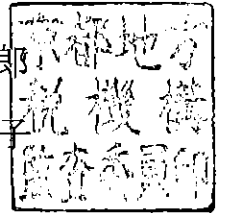 郎
子
京都地方
税機構
監査委員印